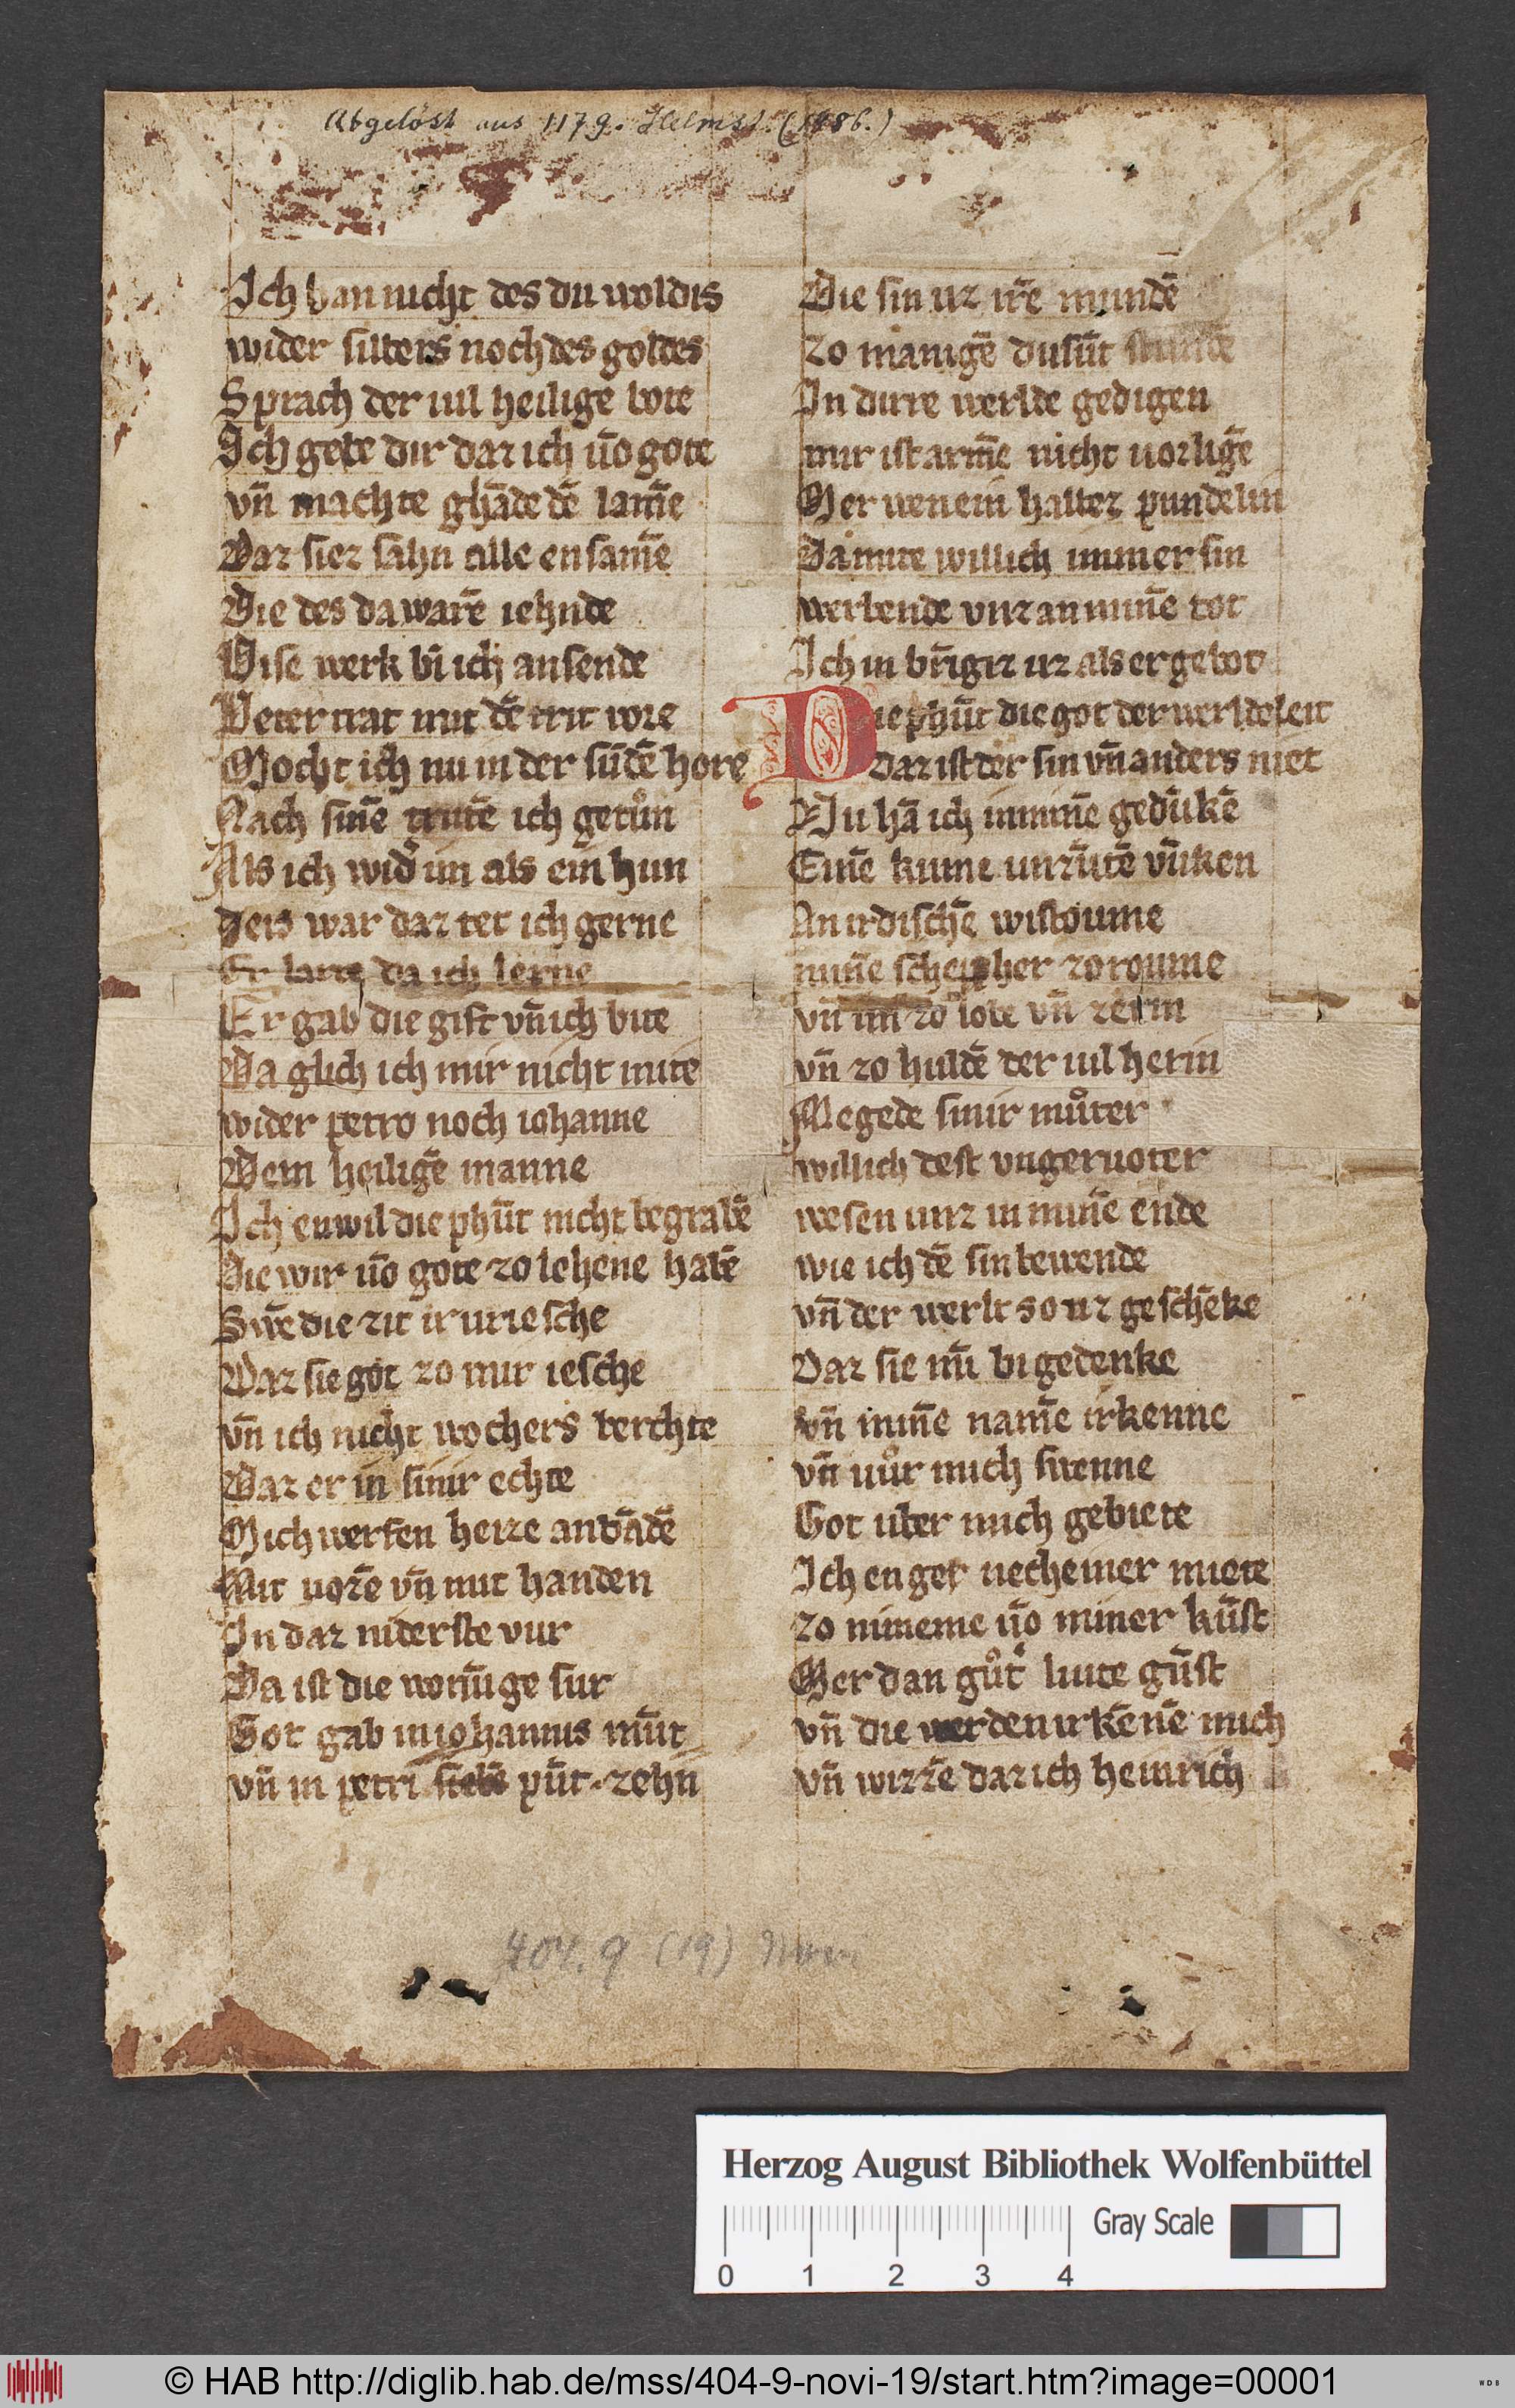 Abgelöst aus 1179. Helmst. (1486.)
Ich han nicht des du woldis
wider silbers noch des goldes
Sprach der uil heilige bote
Ich gebe dir daz ich uō gote
vn̄ machte ghāde dē lam̄e
Daz siez sahn alle ensam̄e
Die des da warē iehnde
Dise werk bī ich ansende
Peter trat mit dē trit vore
Mocht ich nu in der sūdē hore
Nach sinē trittē ich getůn
Als ich wid im als ein hun
Deis war daz tet ich gerne
Er larte da ich lerne
Er gab die gift vn̄ ich bite
Da glich ich mir nicht mite
wider petro noch iohanne
Dem heiligē manne
Ich enwil die phūt nicht begrabē
Die wir uō gote zo lehene habē
Swē die zit ir uriesche
Daz sie got zo mir iesche
vn̄ ich nicht wochers berchte
Daz er in sinir echte
Mich werfen heize an bādē
Mit vozē vn̄ mit handen
In daz niderste vur
Da ist die wonūge sur
Got gab in iohannis mūt
vn̄ in petri pūt zehn
Die sin uz irē mundē
zo manigē dusūt stundē
In dirre werlde gedigen
mir ist arm̄e nicht uorligē
Mer wen ein halbez pundelin
Da mite will ich immer sin
werbende vnz an minē tot
Ich in brīgiz uz als er gebot
Die phūt die got der werlde leit
Daz ist der sin vn̄ anders niet
Nu hā ich in minē gedūkē
Einē kume unzūtē vūken
An irdischē wistoume
minē schepher zo roume
vn̄ im zo lobe vn̄ zerin
vn̄ zo huldē der uil herin
Megede sinir můter
will ich dest vngeruoter
wesen unz in minē ende
wie ich dē sin bewende
vn̄ der werlt so uz geschēke
Daz sie mī bi gedenke
vn̄ minē namē irkenne
vn̄ uůr mich swenne
Got uber mich gebiete
Ich en ger necheiner miete
zo nimeme uō miner kūst
Mer dan gůt lute gūst
vn̄ die werden irkēnē mich
vn̄ wizzē daz ich heinrich
404.9 (19) Novi
Herzog August Bibliothek Wolfenbüttel
Gray Scale
0 1 2 3 4
© HAB http://diglib.hab.de/mss/404-9-novi-19/start.htm?image=00001
WDB